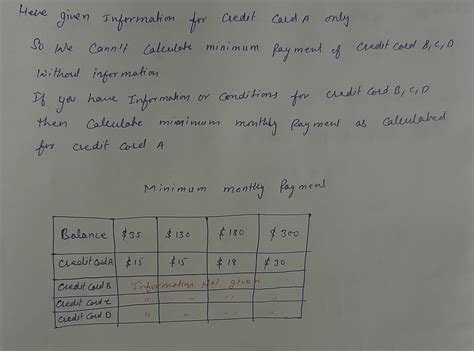 Here given Information for Credit Card A only
So We Cann't Calculate minimum Payment of Credit Card B, C, D
Without information
If you have Information or Conditions for Credit Card B, C, D
then Calculate minimum monthly Payment as Calculated
for Credit Card A
Minimum monthly Payment
Balance $35 $130 $180 $300
Credit Card A $15 $15 $18 $30
Credit Card B Information Not given
Credit Card C " " " "
Credit Card D " " " "